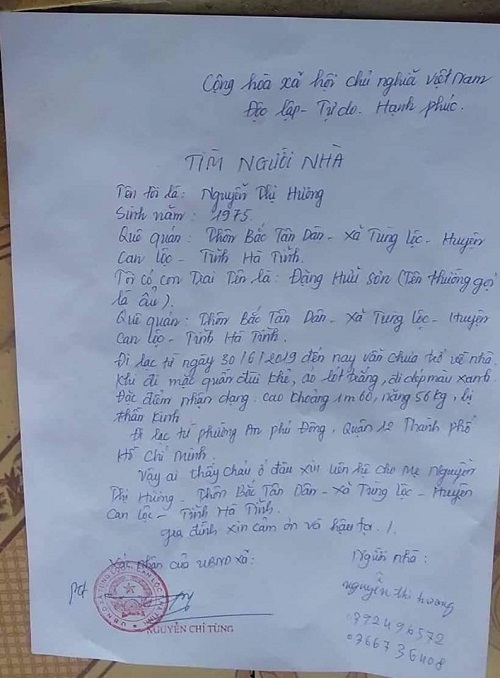 Cộng hòa xã hội chủ nghĩa việt Nam
Độc lập - Tự do. Hạnh phúc.
TÌM NGƯỜI NHÀ
Tên tôi là: Nguyễn Thị Hường
Sinh năm: 1975
Quê quán: Thôn Bắc Tân Dân - xã Tùng Lộc - Huyện
Can Lộc - Tỉnh Hà Tĩnh.
Tôi có con Trai Tên là: Đặng Hữu Sơn (Tên thường gọi
là ẩu).
Quê quán: Thôn Bắc Tân Dân - xã Tùng Lộc - Huyện
Can Lộc - Tỉnh Hà Tĩnh.
Đi lạc từ ngày 30/6/2019 đến nay vẫn chưa trở về nhà.
Khi đi mặc quần đùi khẻ, áo lót trắng, đi dép màu xanh.
Đặc điểm nhận dạng: cao khoảng 1m60, nặng 56kg, bị
thần kinh
Đi lạc từ phường An phú Đông, Quận 12 Thành phố
Hồ Chí Minh.
Vậy ai thấy cháu ở đâu xin liên hệ cho Mẹ Nguyễn
Thị Hường. Thôn Bắc Tân Dân - xã Tùng Lộc - Huyện
Can Lộc - Tỉnh Hà Tĩnh.
gia đình xin cảm ơn và hậu tạ./.
Xác nhận của UBND xã:
Người nhà:
Pct
nguyễn thi hương
NGUYỄN CHÍ TÙNG
0392496572
0366736408